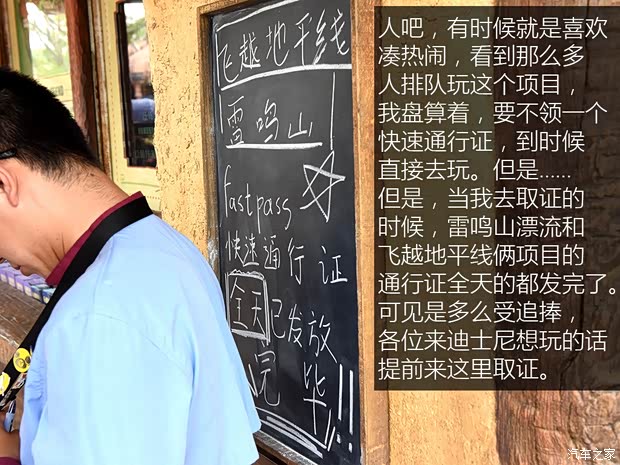 飞越地平线
雷鸣山
fastpass
快速通行证
全天已发放
完毕!!
人吧，有时候就是喜欢
凑热闹，看到那么多
人排队玩这个项目，
我盘算着，要不领一个
快速通行证，到时候
直接去玩。但是......
但是，当我去取证的
时候，雷鸣山漂流和
飞越地平线俩项目的
通行证全天的都发完了。
可见是多么受追捧，
各位来迪士尼想玩的话
提前来这里取证。
汽车之家